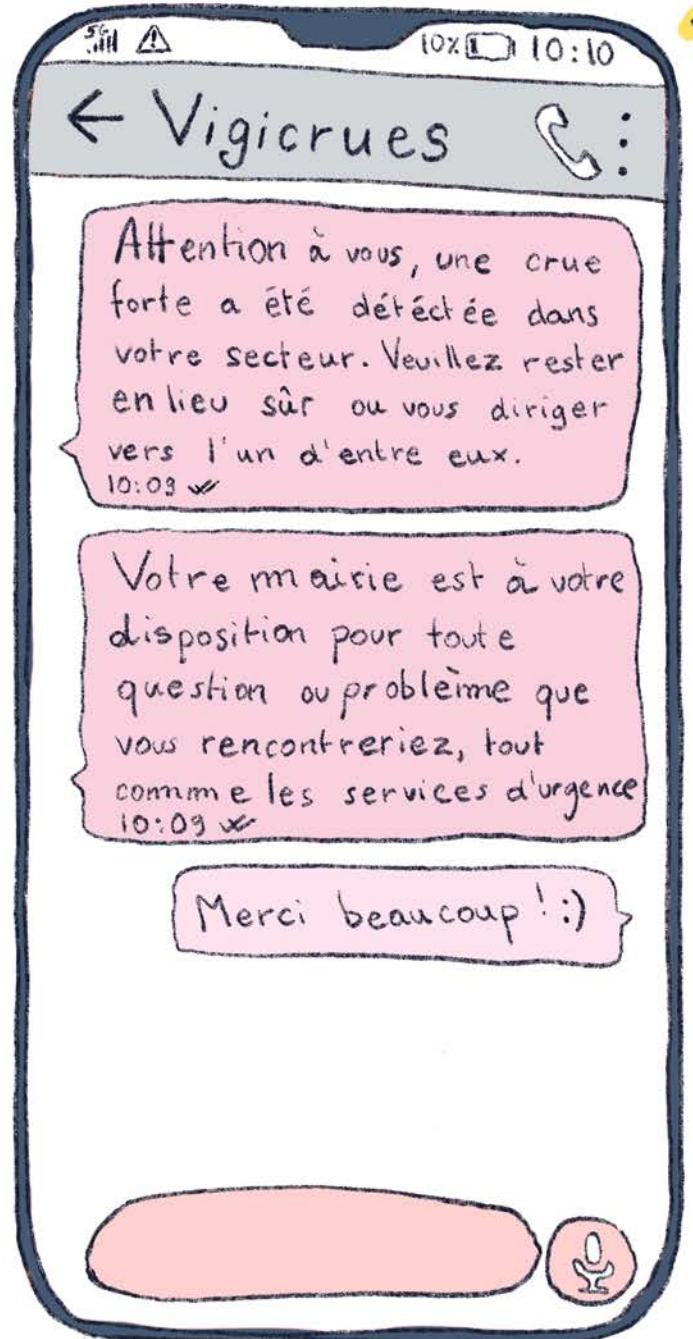 5G 10% 10:10
← Vigicrues
Attention à vous, une crue
forte a été détéctée dans
votre secteur. Veuillez rester
en lieu sûr ou vous diriger
vers l'un d'entre eux.
10:09
Votre mairie est à votre
disposition pour toute
question ou problème que
vous rencontreriez, tout
comme les services d'urgence
10:09
Merci beaucoup ! :)